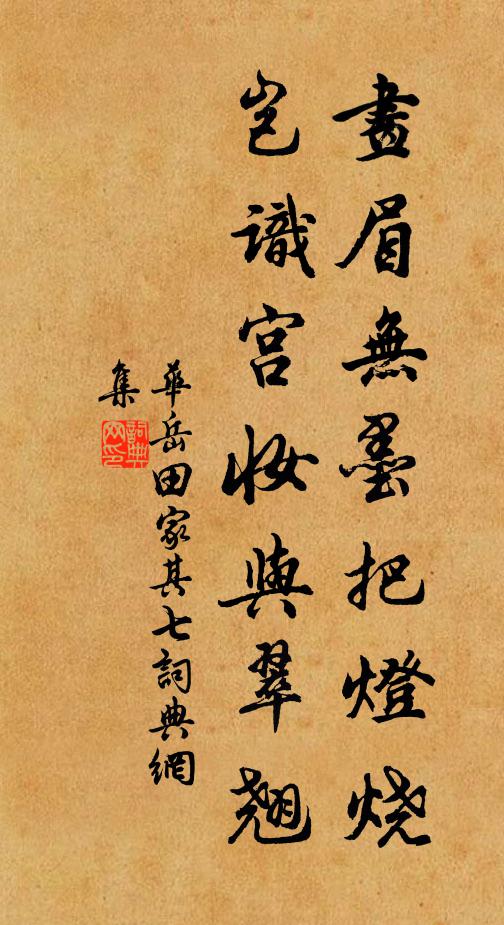 畫眉無墨把燈燒
豈識宮妝與翠翹
華岳田家其七詞典網
集
詞典
网印